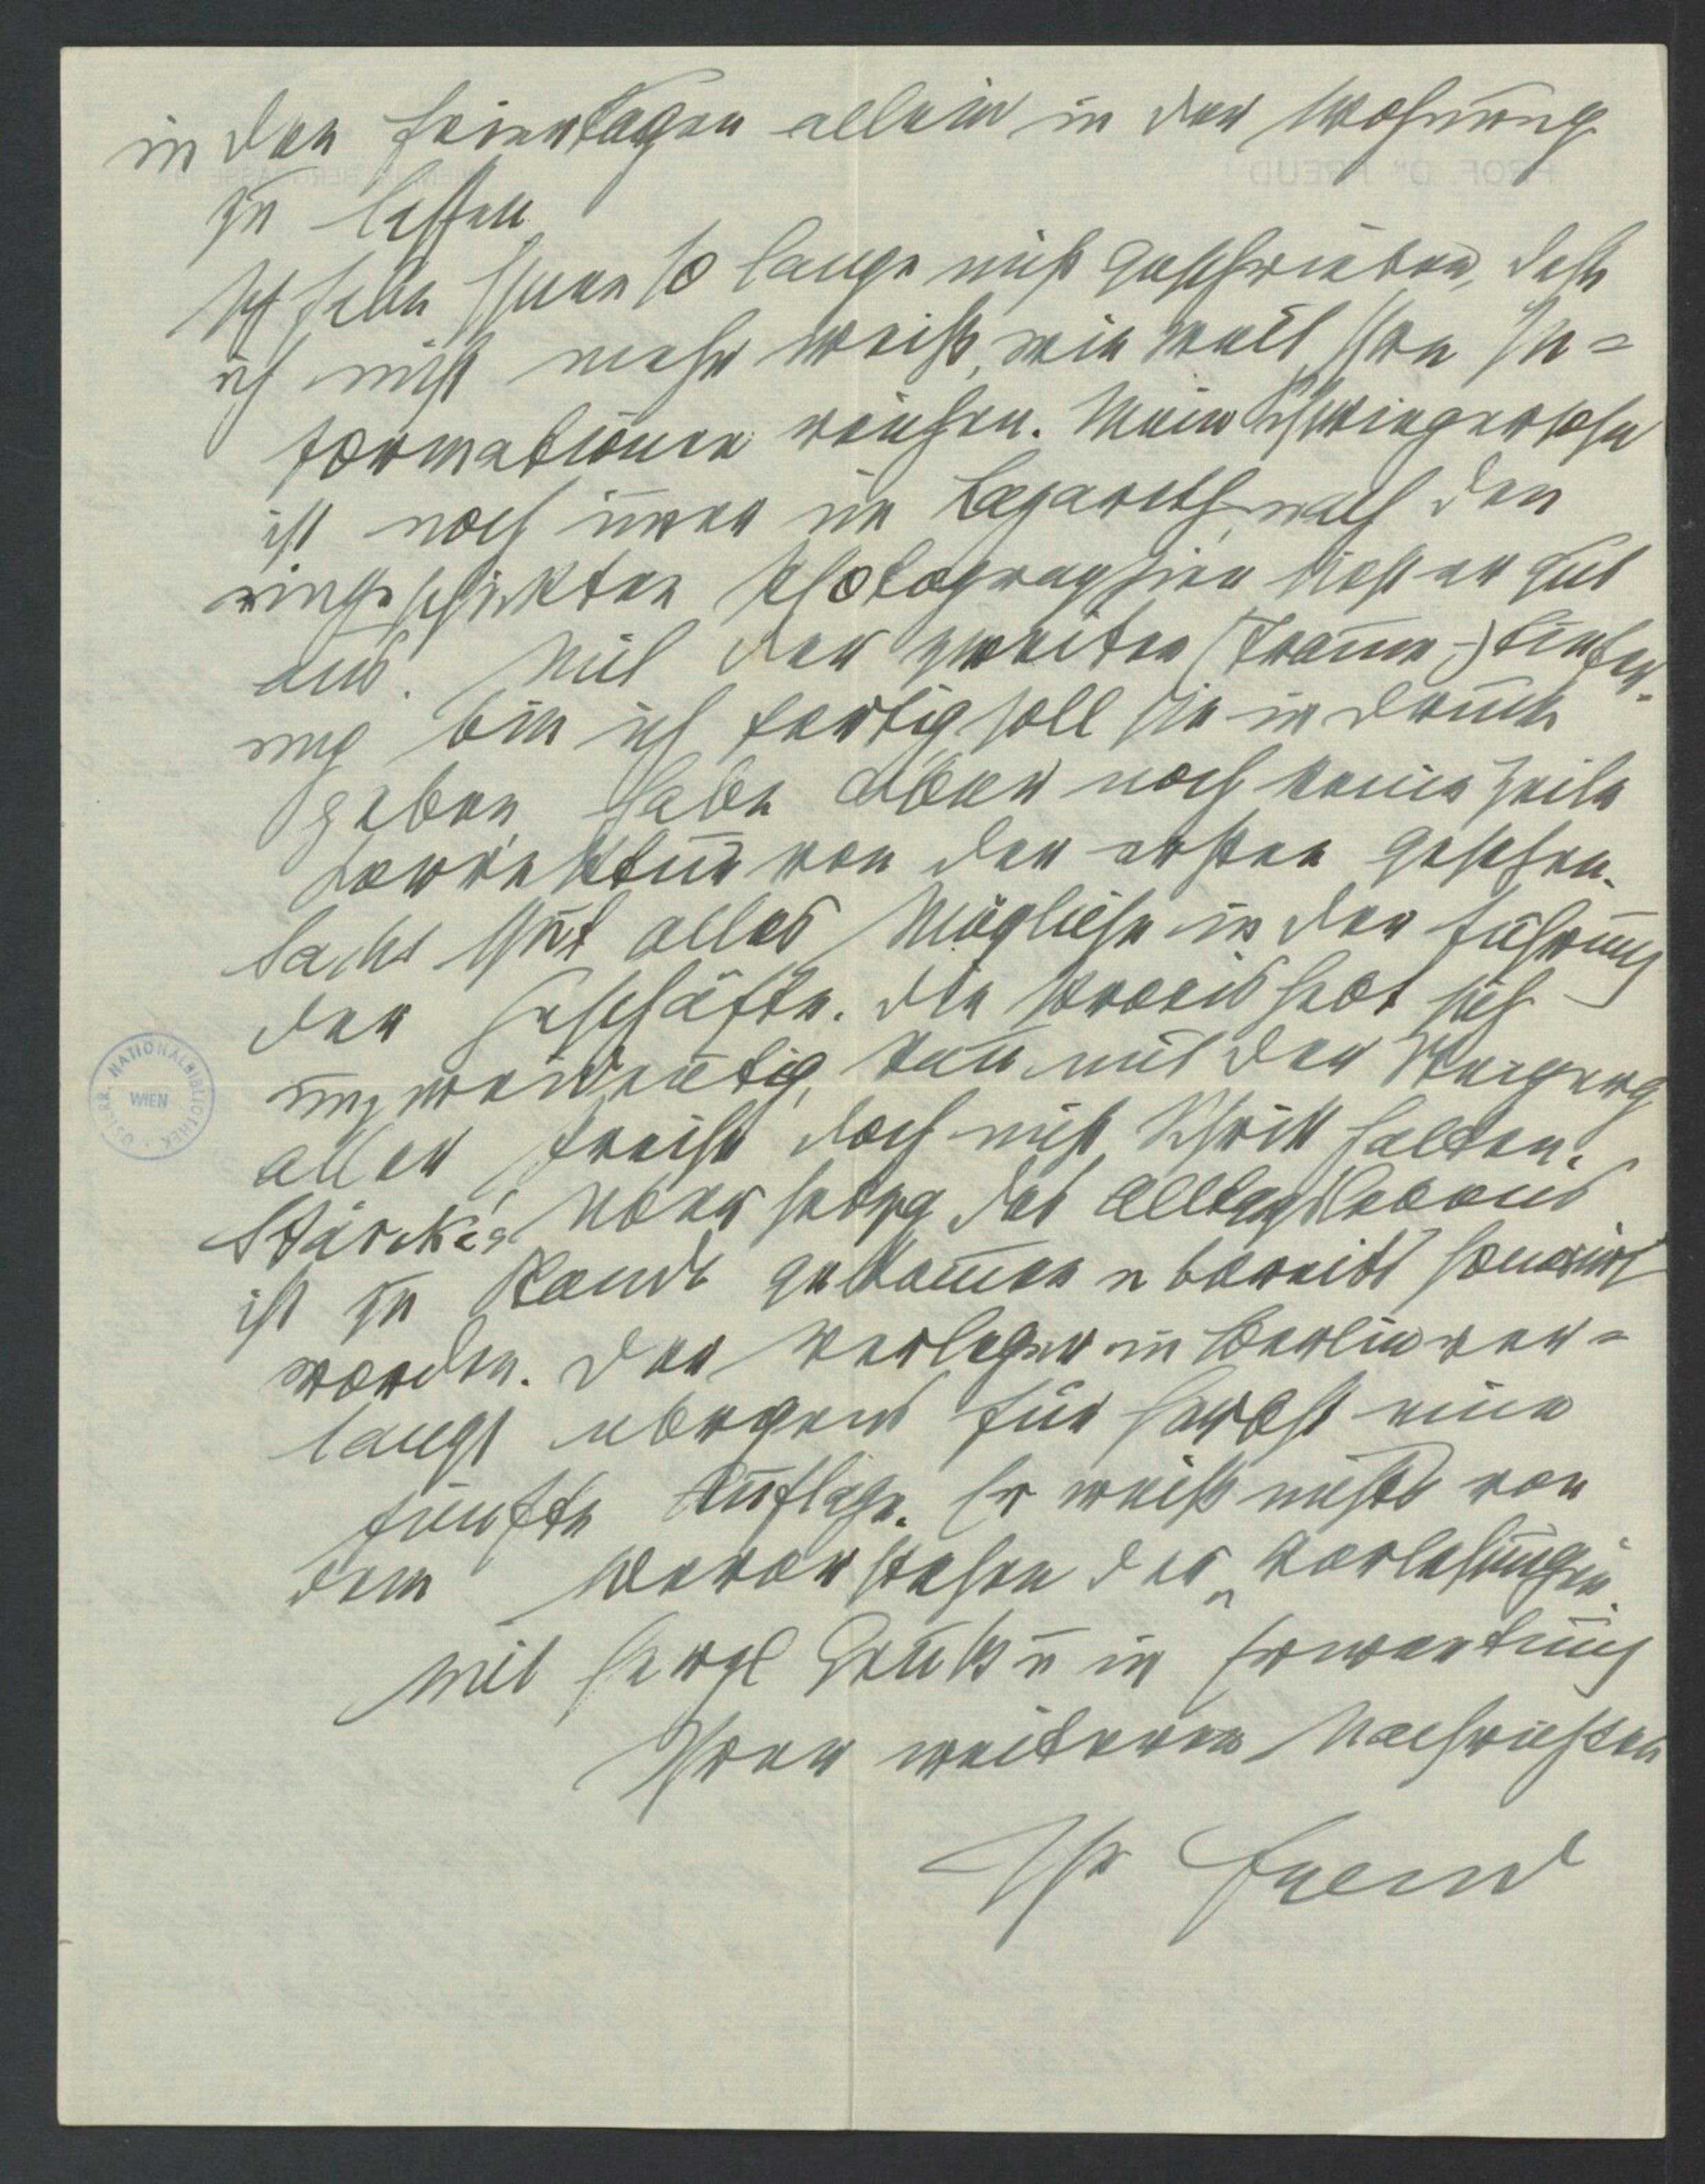 in den Feiertagen allein in der Wohnung
zu lassen.
Ich habe Ihnen so lange nicht geschrieben, daß
ich nicht mehr weiß, wie weit Ihre In=
formationen reichen. Mein Schwiegersohn
ist noch immer im Lazareth, nach den
eingeschickten Photographien sieht er gut
aus. Mit der zweiten (Traum-) Liefer-
ung bin ich fertig, soll sie in Druck
geben, habe aber noch keine Zeile
Korrektur von der ersten gesehen.
Sachs thut alles Mögliche in der Führung
der Geschäfte. Die Praxis hebt sich
unzweideutig, kann mit der Steigerung
aller Preise doch nicht Schritt halten.
Stärcke's Übersetzg des Alltagslebens
ist zu Stande gekommen u bereits
worden. Der Verleger in Berlin ver=
langt übrigens für Herbst eine
fünfte Auflage. Er weiß nichts von
dem Bevorstehen der „Vorlesungen
Mit herzl Gruß u in Erwartung
Ihrer weiteren Nachrichten
Ihr Freud
PROF. Dr. FREUD
WIEN, IX. BERGGASSE 19
ÖSTERR. NATIONALBIBLIOTHEK
WIEN